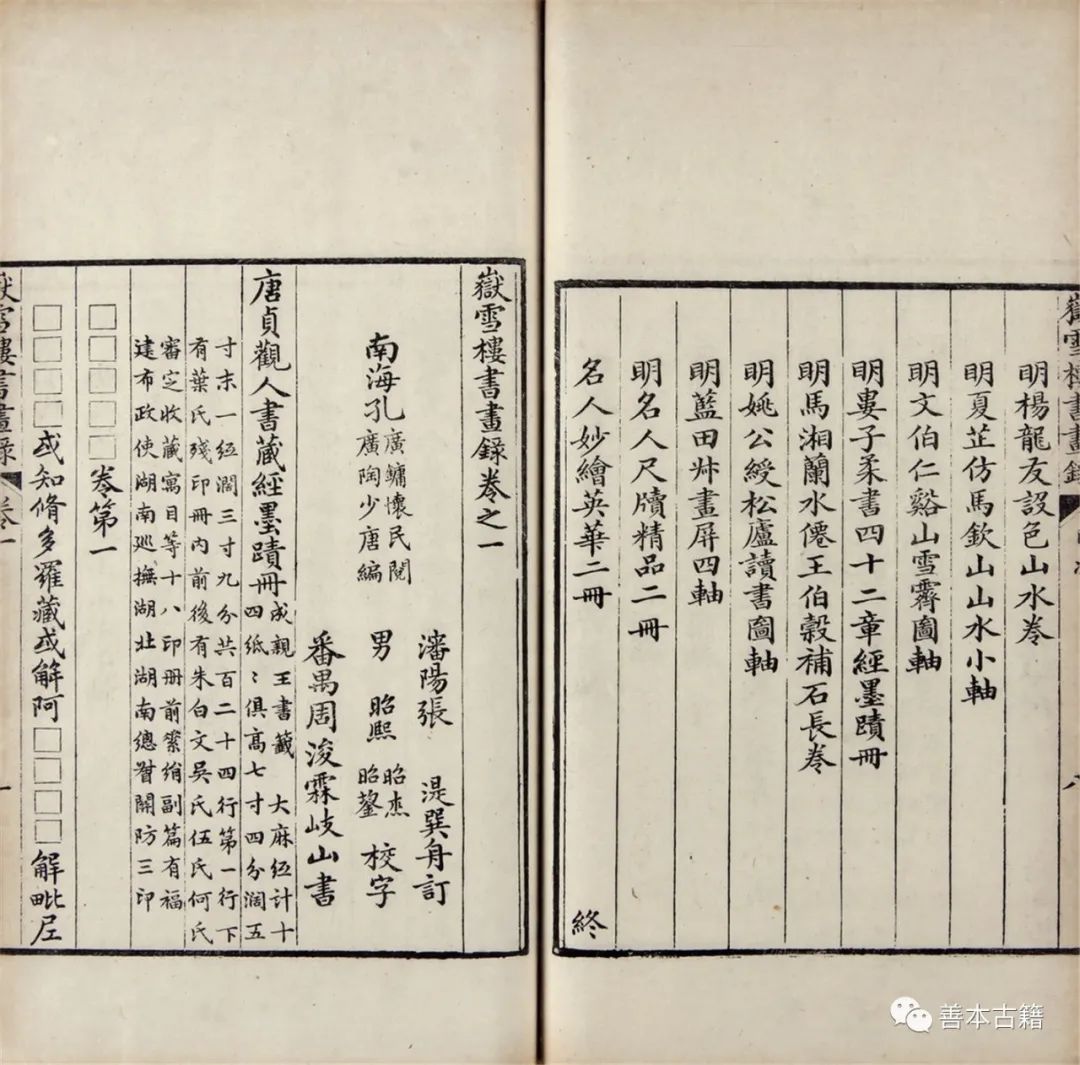 嶽雪樓書畫錄
八
明楊龍友設色山水卷
明夏芷仿馬欽山山水小軸
明文伯仁谿山雪霽圖軸
明婁子柔書四十二章經墨蹟冊
明馬湘蘭水僊王伯穀補石長卷
明姚公綬松廬讀書圖軸
明藍田叔畫屏四軸
明名人尺牘精品二冊
名人妙繪英華二冊 終
嶽雪樓書畫錄卷之一
瀋陽張 湜巽舟訂
南海孔
廣鏞懷民閱
廣陶少唐編
男 昭熙
昭杰
昭鋆
校字
番禺周浚霖岐山書
唐貞觀人書藏經墨蹟冊
成親王書籤 大麻紙計十
四紙〻俱高七寸四分濶五
寸末一紙濶三寸九分共百二十四行第一行下
有葉氏殘印冊內前後有朱白文吳氏伍氏何氏
審定收藏寓目等十八印冊前綃副篇有福
建布政使湖南巡撫湖北湖南總督關防三印
□□□□□卷第一
□□□□或知脩多羅藏或解阿□□□□解毗尼
嶽雪樓書畫錄 卷一
一
善本古籍